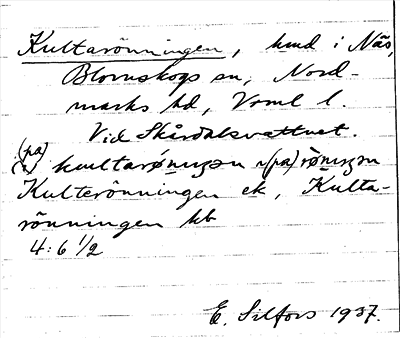 Kultarönningen, hmd i Näs,
Blomskogs sn, Nord-
marks hd, Vrml l.
Vid Skårdalsvattnet.
(på) kultarø̀nıŋən ı (på) rø̀nıŋən
Kulterönningen ek, Kulta-
rönningen kb
4:6 1/2
E. Silfors 1937.